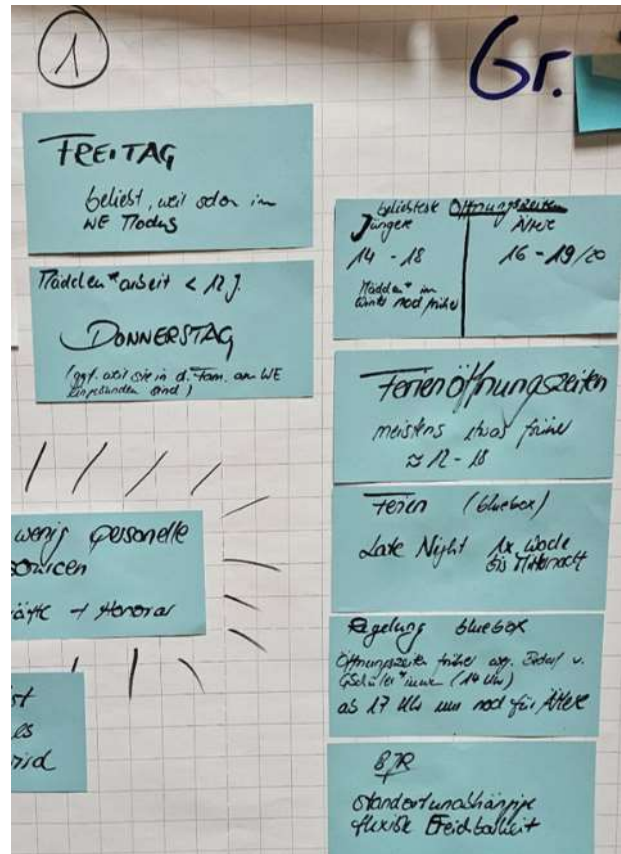 1
Gr.
FREITAG
beliebt, weil schon im
WE Modus
Mädchen*arbeit < 12 J.
DONNERSTAG
(ggf. weil sie in d. Fam. am WE
eingebunden sind)
wenig personelle
+ Honorar
beliebteste Öffnungszeiten
Jüngere Ältere
14 - 18 16 - 19/20
Mädchen* im
Winter noch früher
Ferienöffnungszeiten
meistens etwas früher
≈ 12 - 18
Ferien (bluebox)
Late Night 1x Woche
bis Mitternacht
Regelung bluebox
Öffnungszeiten früher wg. Bedarf v.
GSchüler*innen (14 Uhr)
ab 17 Uhr nur noch für Ältere
BJR
standortunabhängige
flexible Erreichbarkeit